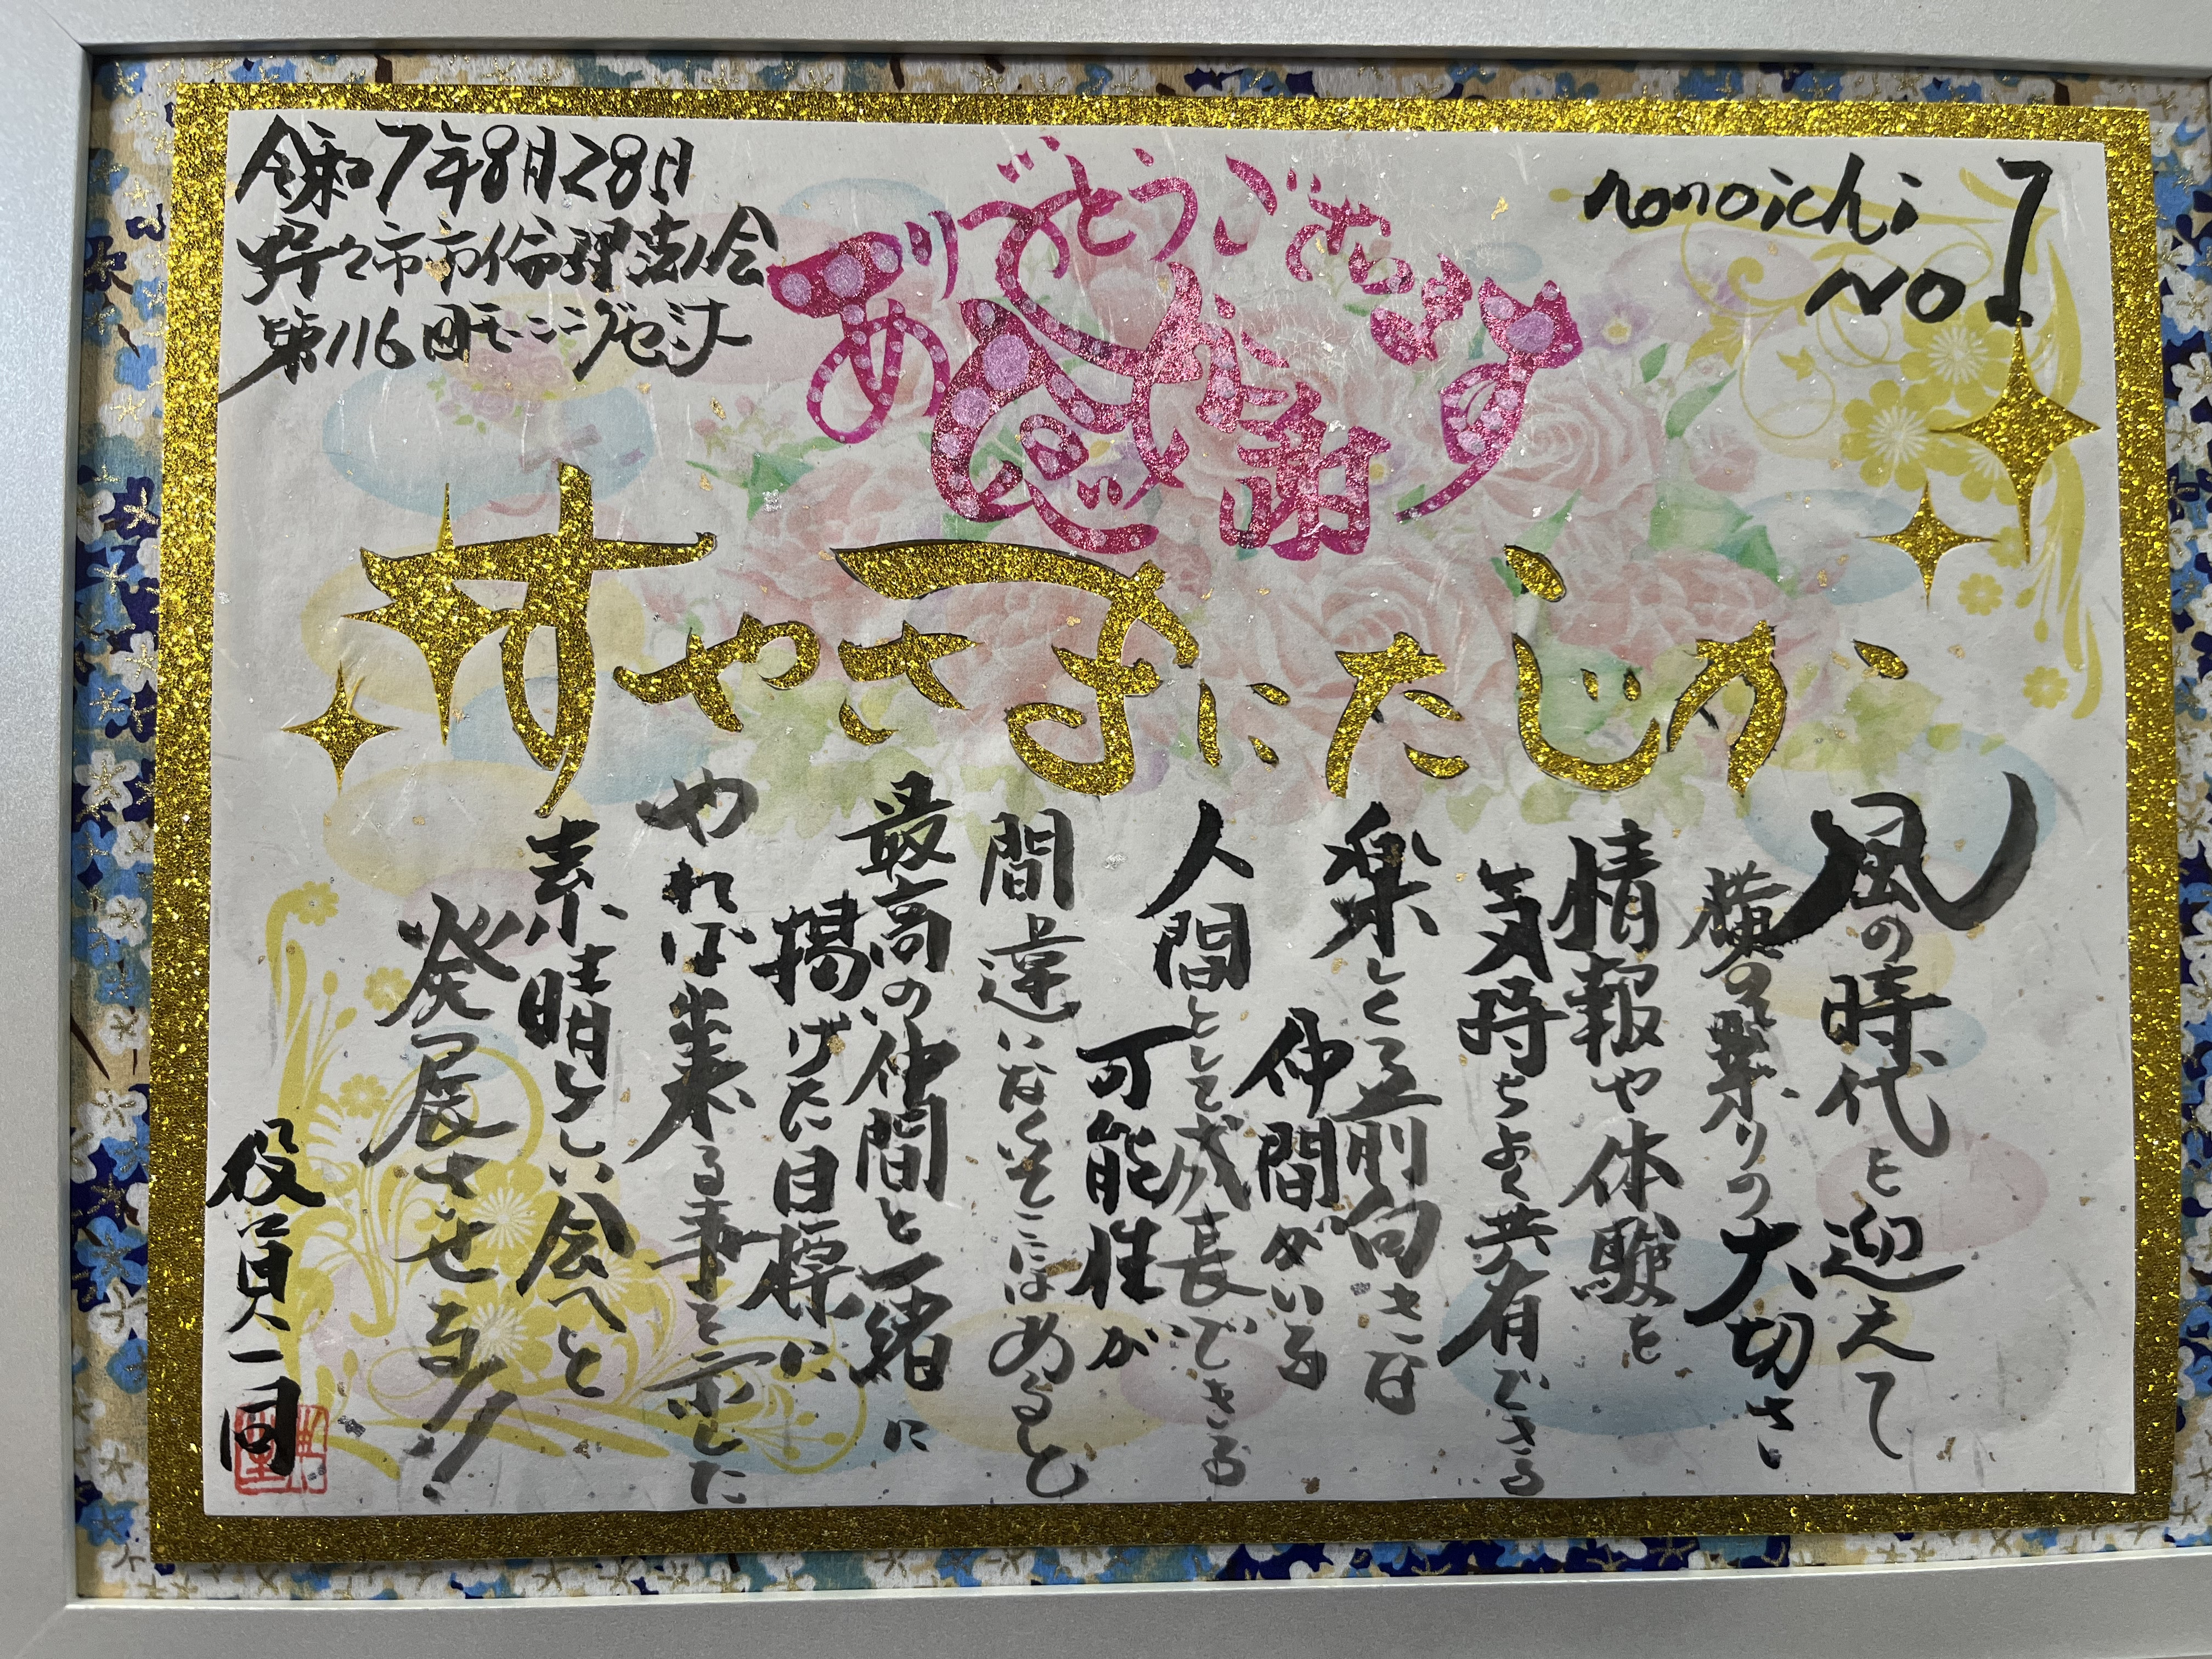 令和7年8月28日
野々市市倫理法人会
第116回モーニングセミナー
ありがとうございます
感謝
nonoichi
No1
かじたにまさやす
風の時代を迎えて
横の繋りの大切さ、
情報や体験を
気持ちよく共有できる
楽しくて前向きな
仲間がいる
人間として成長できる
可能性が
間違いなくそこにはあると
最高の仲間と一緒に
掲げた目標に
やれば出来る事を示した
素晴しい会へと
発展させる!!
役員一同